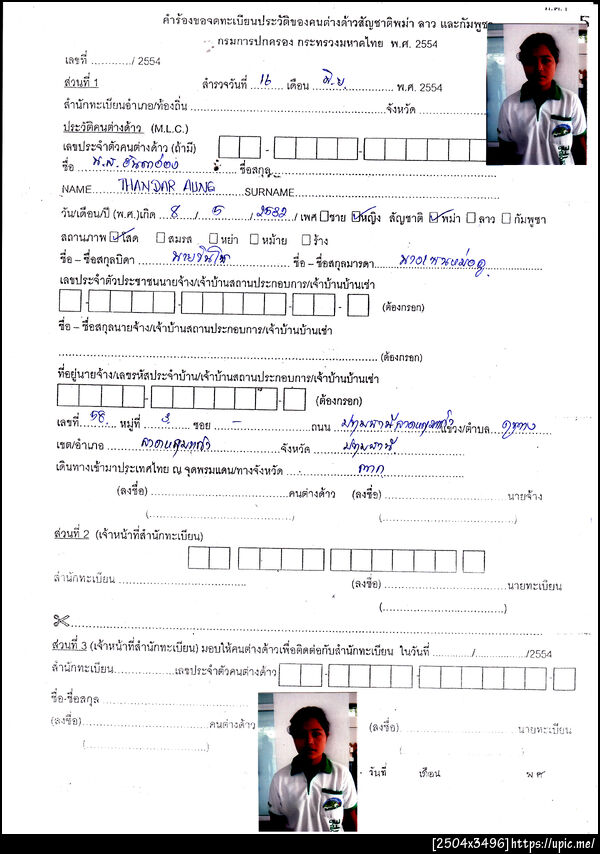 คำร้องขอจดทะเบียนประวัติของคนต่างด้าวสัญชาติพม่า ลาว และกัมพูชา
กรมการปกครอง กระทรวงมหาดไทย พ.ศ. 2554
เลขที่ ............./ 2554
ส่วนที่ 1 สำรวจวันที่ 16 เดือน มิ.ย. พ.ศ. 2554
สำนักทะเบียนอำเภอ/ท้องถิ่น ........ จังหวัด ........
ประวัติคนต่างด้าว (M.L.C.)
เลขประจำตัวคนต่างด้าว (ถ้ามี)
ชื่อ น.ส. ........ ชื่อสกุล ........
NAME THANDAR AUNG SURNAME ........
วัน/เดือน/ปี (พ.ศ.)เกิด 8 / 5 / 2532 / เพศ ชาย หญิง สัญชาติ พม่า ลาว กัมพูชา
สถานภาพ โสด สมรส หย่า หม้าย ร้าง
ชื่อ – ชื่อสกุลบิดา ........ ชื่อ – ชื่อสกุลมารดา ........
เลขประจำตัวประชาชนนายจ้าง/เจ้าบ้านสถานประกอบการ/เจ้าบ้านบ้านเช่า
(ต้องกรอก)
ชื่อ – ชื่อสกุลนายจ้าง/เจ้าบ้านสถานประกอบการ/เจ้าบ้านบ้านเช่า
........ (ต้องกรอก)
ที่อยู่นายจ้าง/เลขรหัสประจำบ้าน/เจ้าบ้านสถานประกอบการ/เจ้าบ้านบ้านเช่า
(ต้องกรอก)
เลขที่ 58 หมู่ที่ 3 ซอย - ถนน ปทุมธานี ลาดหลุมแก้ว แขวง/ตำบล คูบาง
เขต/อำเภอ ลาดหลุมแก้ว จังหวัด ปทุมธานี
เดินทางเข้ามาประเทศไทย ณ จุดพรมแดน/ทางจังหวัด ตาก
(ลงชื่อ) ........ คนต่างด้าว (ลงชื่อ) ........ นายจ้าง
(........) (........)
ส่วนที่ 2 (เจ้าหน้าที่สำนักทะเบียน)
สำนักทะเบียน ........ (ลงชื่อ) ........ นายทะเบียน
(........)
ส่วนที่ 3 (เจ้าหน้าที่สำนักทะเบียน) มอบให้คนต่างด้าวเพื่อติดต่อกับสำนักทะเบียน ในวันที่ ......../......../2554
สำนักทะเบียน ........ เลขประจำตัวคนต่างด้าว
ชื่อ-ชื่อสกุล ........
(ลงชื่อ) ........ คนต่างด้าว (ลงชื่อ) ........ นายทะเบียน
(........) (
วันที่ เดือน พ.ศ.
[2504x3496]https://upic.me/